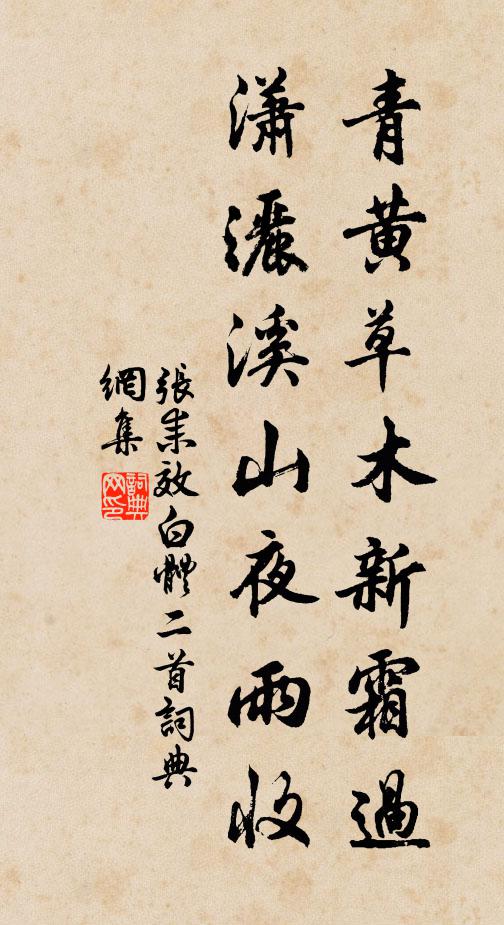 青黃草木新霜過
瀟灑溪山夜雨收
張耒效白體二首詞典
網集
詞典网印